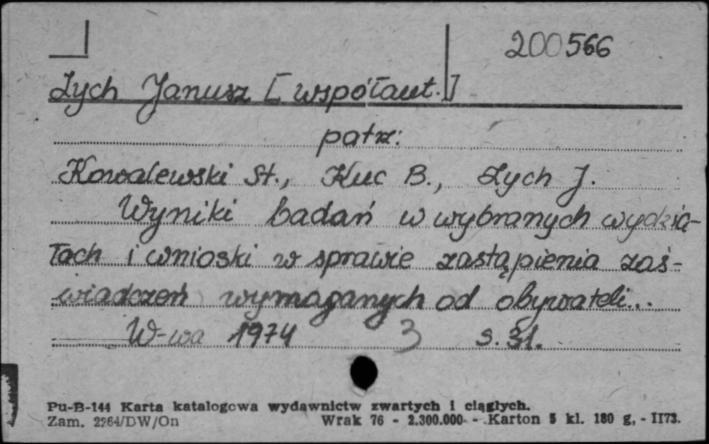 200566
Łych Janusz [współaut.]
patrz:
Kowalewski St., Kuc B., Łych J.
Wyniki badań w wybranych wydzia-
łach i wnioski w sprawie zastąpienia zaś-
wiadczeń wymaganych od obywateli...
W-wa 1974 3 s. 31.
Pu-B-144 Karta katalogowa wydawnictw zwartych i ciągłych.
Zam. 2264/DW/On Wrak 76 - 2.300.000 - Karton 5 kl. 180 g. - II73.